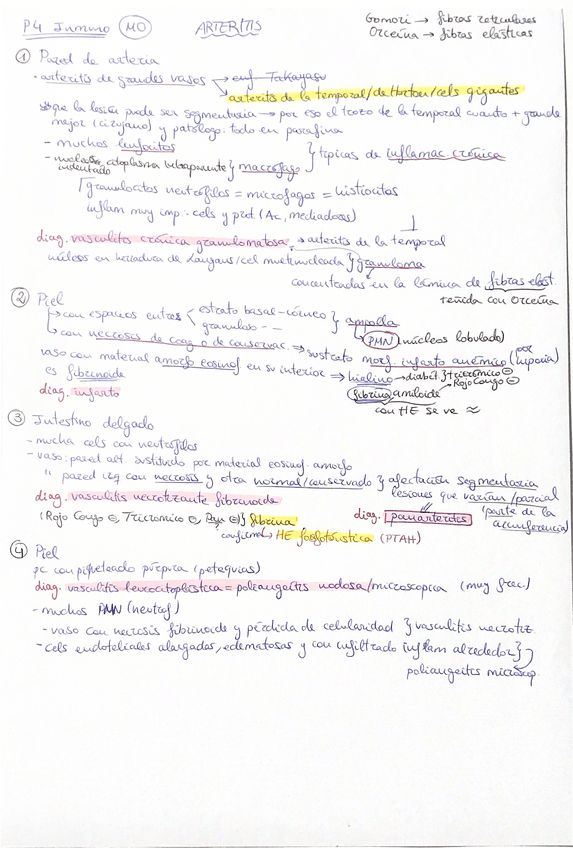 P4 Inmuno (MO) ARTERITIS
Gomori → fibras reticulares
Orceína → fibras elásticas
① Pared de arteria
· arteritis de grandes vasos → enf Takayasu
→ arteritis de la temporal/de Horton/cels gigantes
que la lesión puede ser segmentaria → por eso el trozo de la temporal cuanto + grande
mejor (cirujano) y patólogo: todo en parafina
- muchos linfocitos
- núcleo indentado, citoplasma } macrófago } típicas de inflamac. crónica
granulocitos neutrófilos = micrófagos = histiocitos
inflam muy imp: cels y prot (Ac, mediadores)
diag. vasculitis crónica granulomatosa → arteritis de la temporal
núcleos en herradura de Langans/cel multinucleada } granuloma
concentradas en la lámina de fibras elást.
teñida con Orceína
② Piel
→ con espacios entres < estrato basal-córneo } ampolla
granuloso - -
→ PMN (núcleos lobulado)
→ con necrosis de coag o de conservac. ⇒ sustrato morf. infarto anémico (por hipoxia)
vaso con material amorfo eosinof en su interior ⇒ hialino → diabét } tricrómico ⊖
Rojo Congo ⊖
es fibrinoide
fibrina, amiloide
diag. infarto
con HE se ve ≈
③ Intestino delgado
- mucha cels con neutrófilos
- vaso: pared alt. sustituido por material eosinof. amorfo
" pared izq con necrosis y otra normal/conservado } afectación segmentaria
lesiones que varían/parcial
diag. vasculitis necrotizante fibrinoide
diag. panarteritis (parte de la circunferencia)
(Rojo Congo ⊖, Tricromico ⊖, ⊖) } fibrina
confirm → HE fosfotúngstica (PTAH)
④ Piel
pc con piqueteado púrpura (petequias)
diag. vasculitis leucocitoplástica = poliangeitis nodosa/microscopica (muy frec)
- muchos PMN (neutrof)
- vaso con necrosis fibrinoide y pérdida de celularidad } vasculitis necrotiz.
- cels endoteliales alargadas, edematosas y con infiltrado (inflam alrededor) }
poliangeitis microscop.